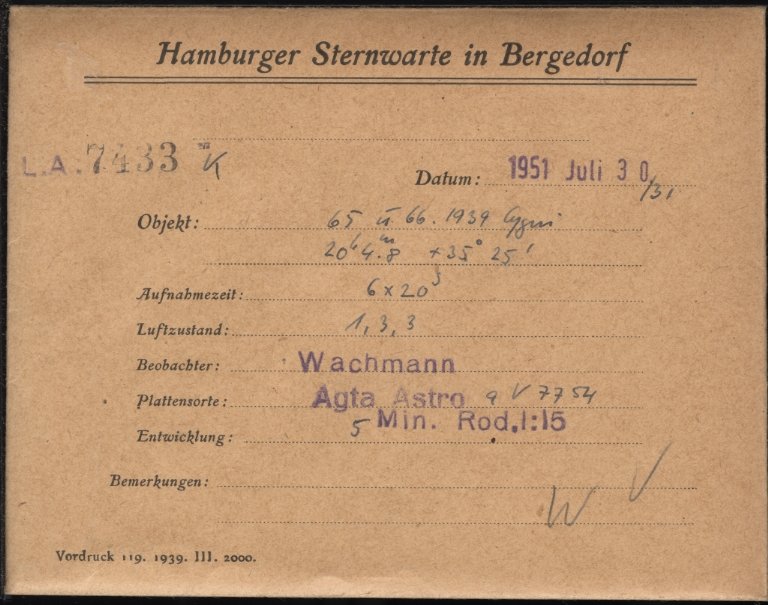 Hamburger Sternwarte in Bergedorf
L.A. 7433 K
Datum: 1951 Juli 30/31
Objekt: 65 u 66. 1939 Cygni
20h 4.m8 +35° 25'
Aufnahmezeit: 6 x 20s
Luftzustand: 1, 3, 3
Beobachter: Wachmann
Plattensorte: Agfa Astro V 7754
Entwicklung: 5 Min. Rod. 1:15
Bemerkungen:
W V
Vordruck 119. 1939. III. 2000.